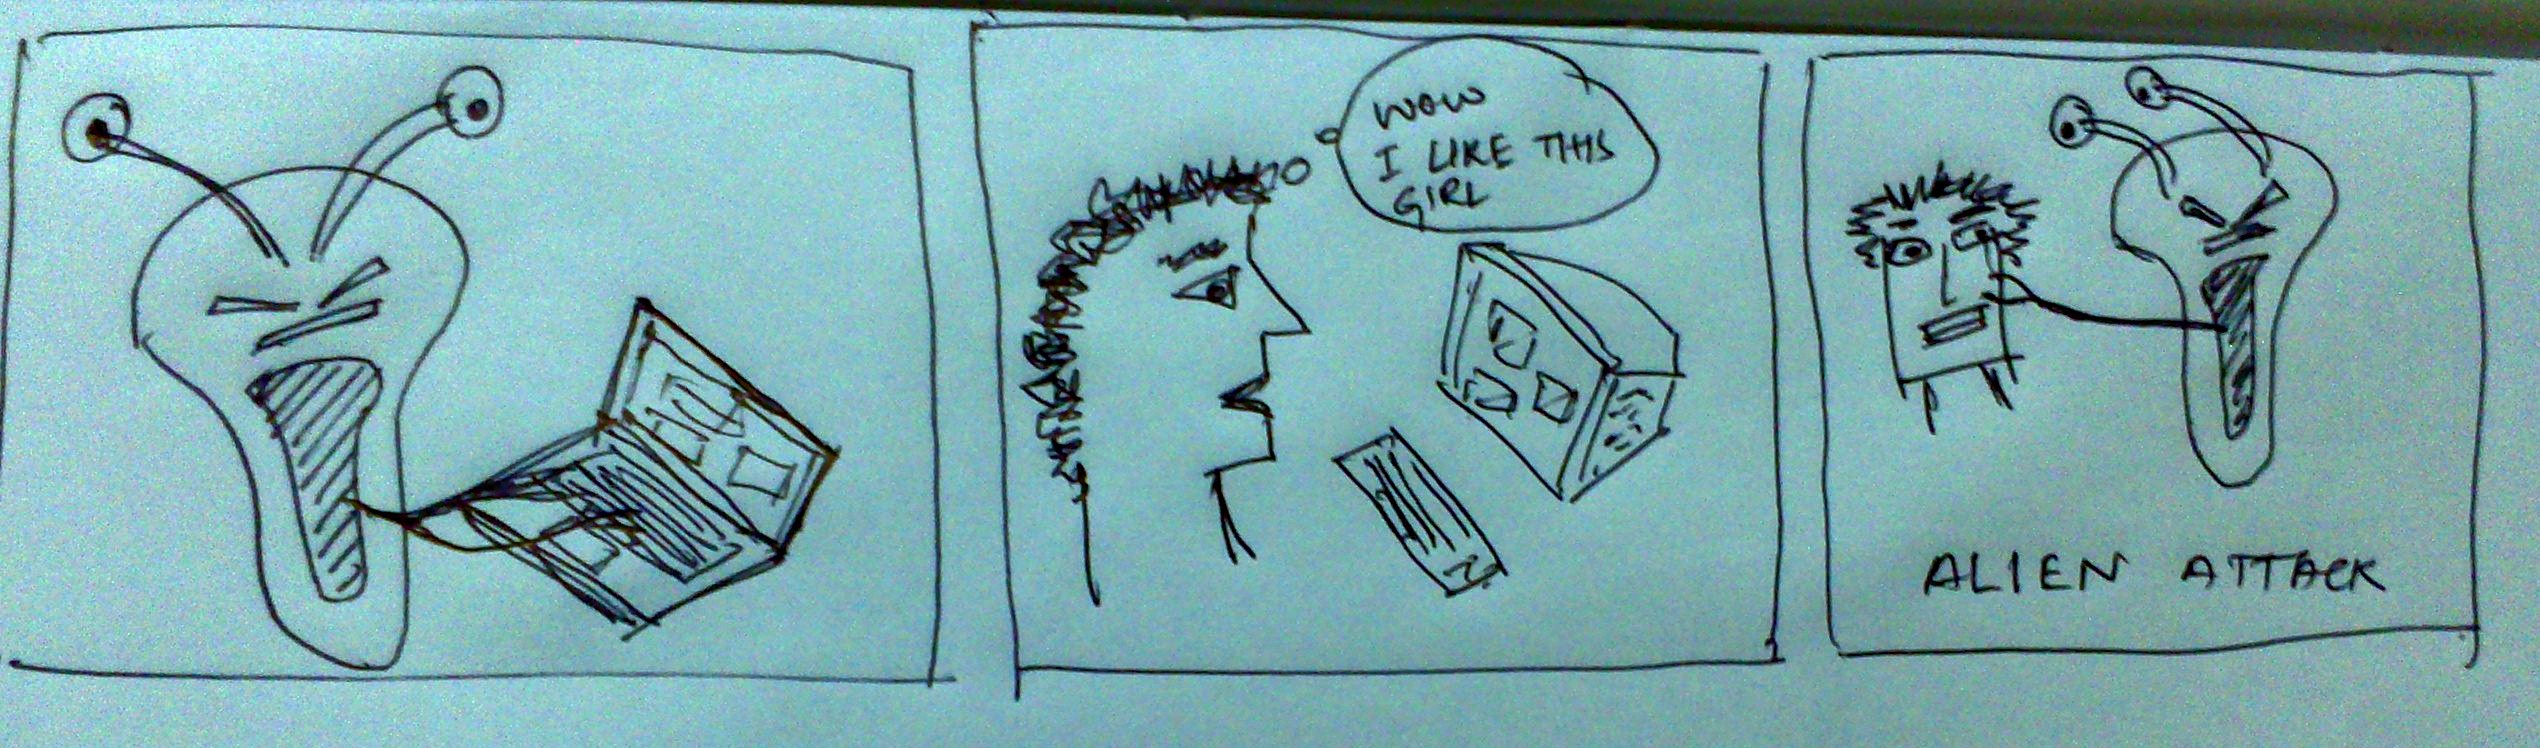 WOW
I LIKE THIS
GIRL
ALIEN ATTACK